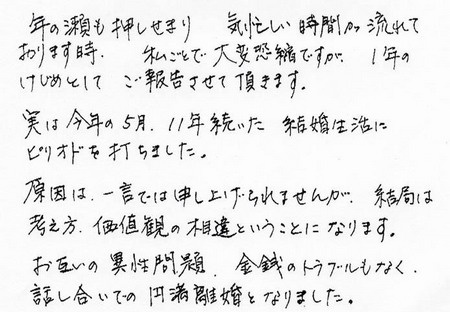 年の瀬も押しせまり　気忙しい時間が流れて
おります時、　私ごとで大変恐縮ですが、１年の
けじめとして　ご報告させて頂きます。
実は今年の５月、１１年続いた　結婚生活に
ピリオドを打ちました。
原因は、一言では申し上げられませんが、結局は
考え方、価値観の相違ということになります。
お互いの異性問題、金銭のトラブルもなく、
話し合いでの円満離婚となりました。